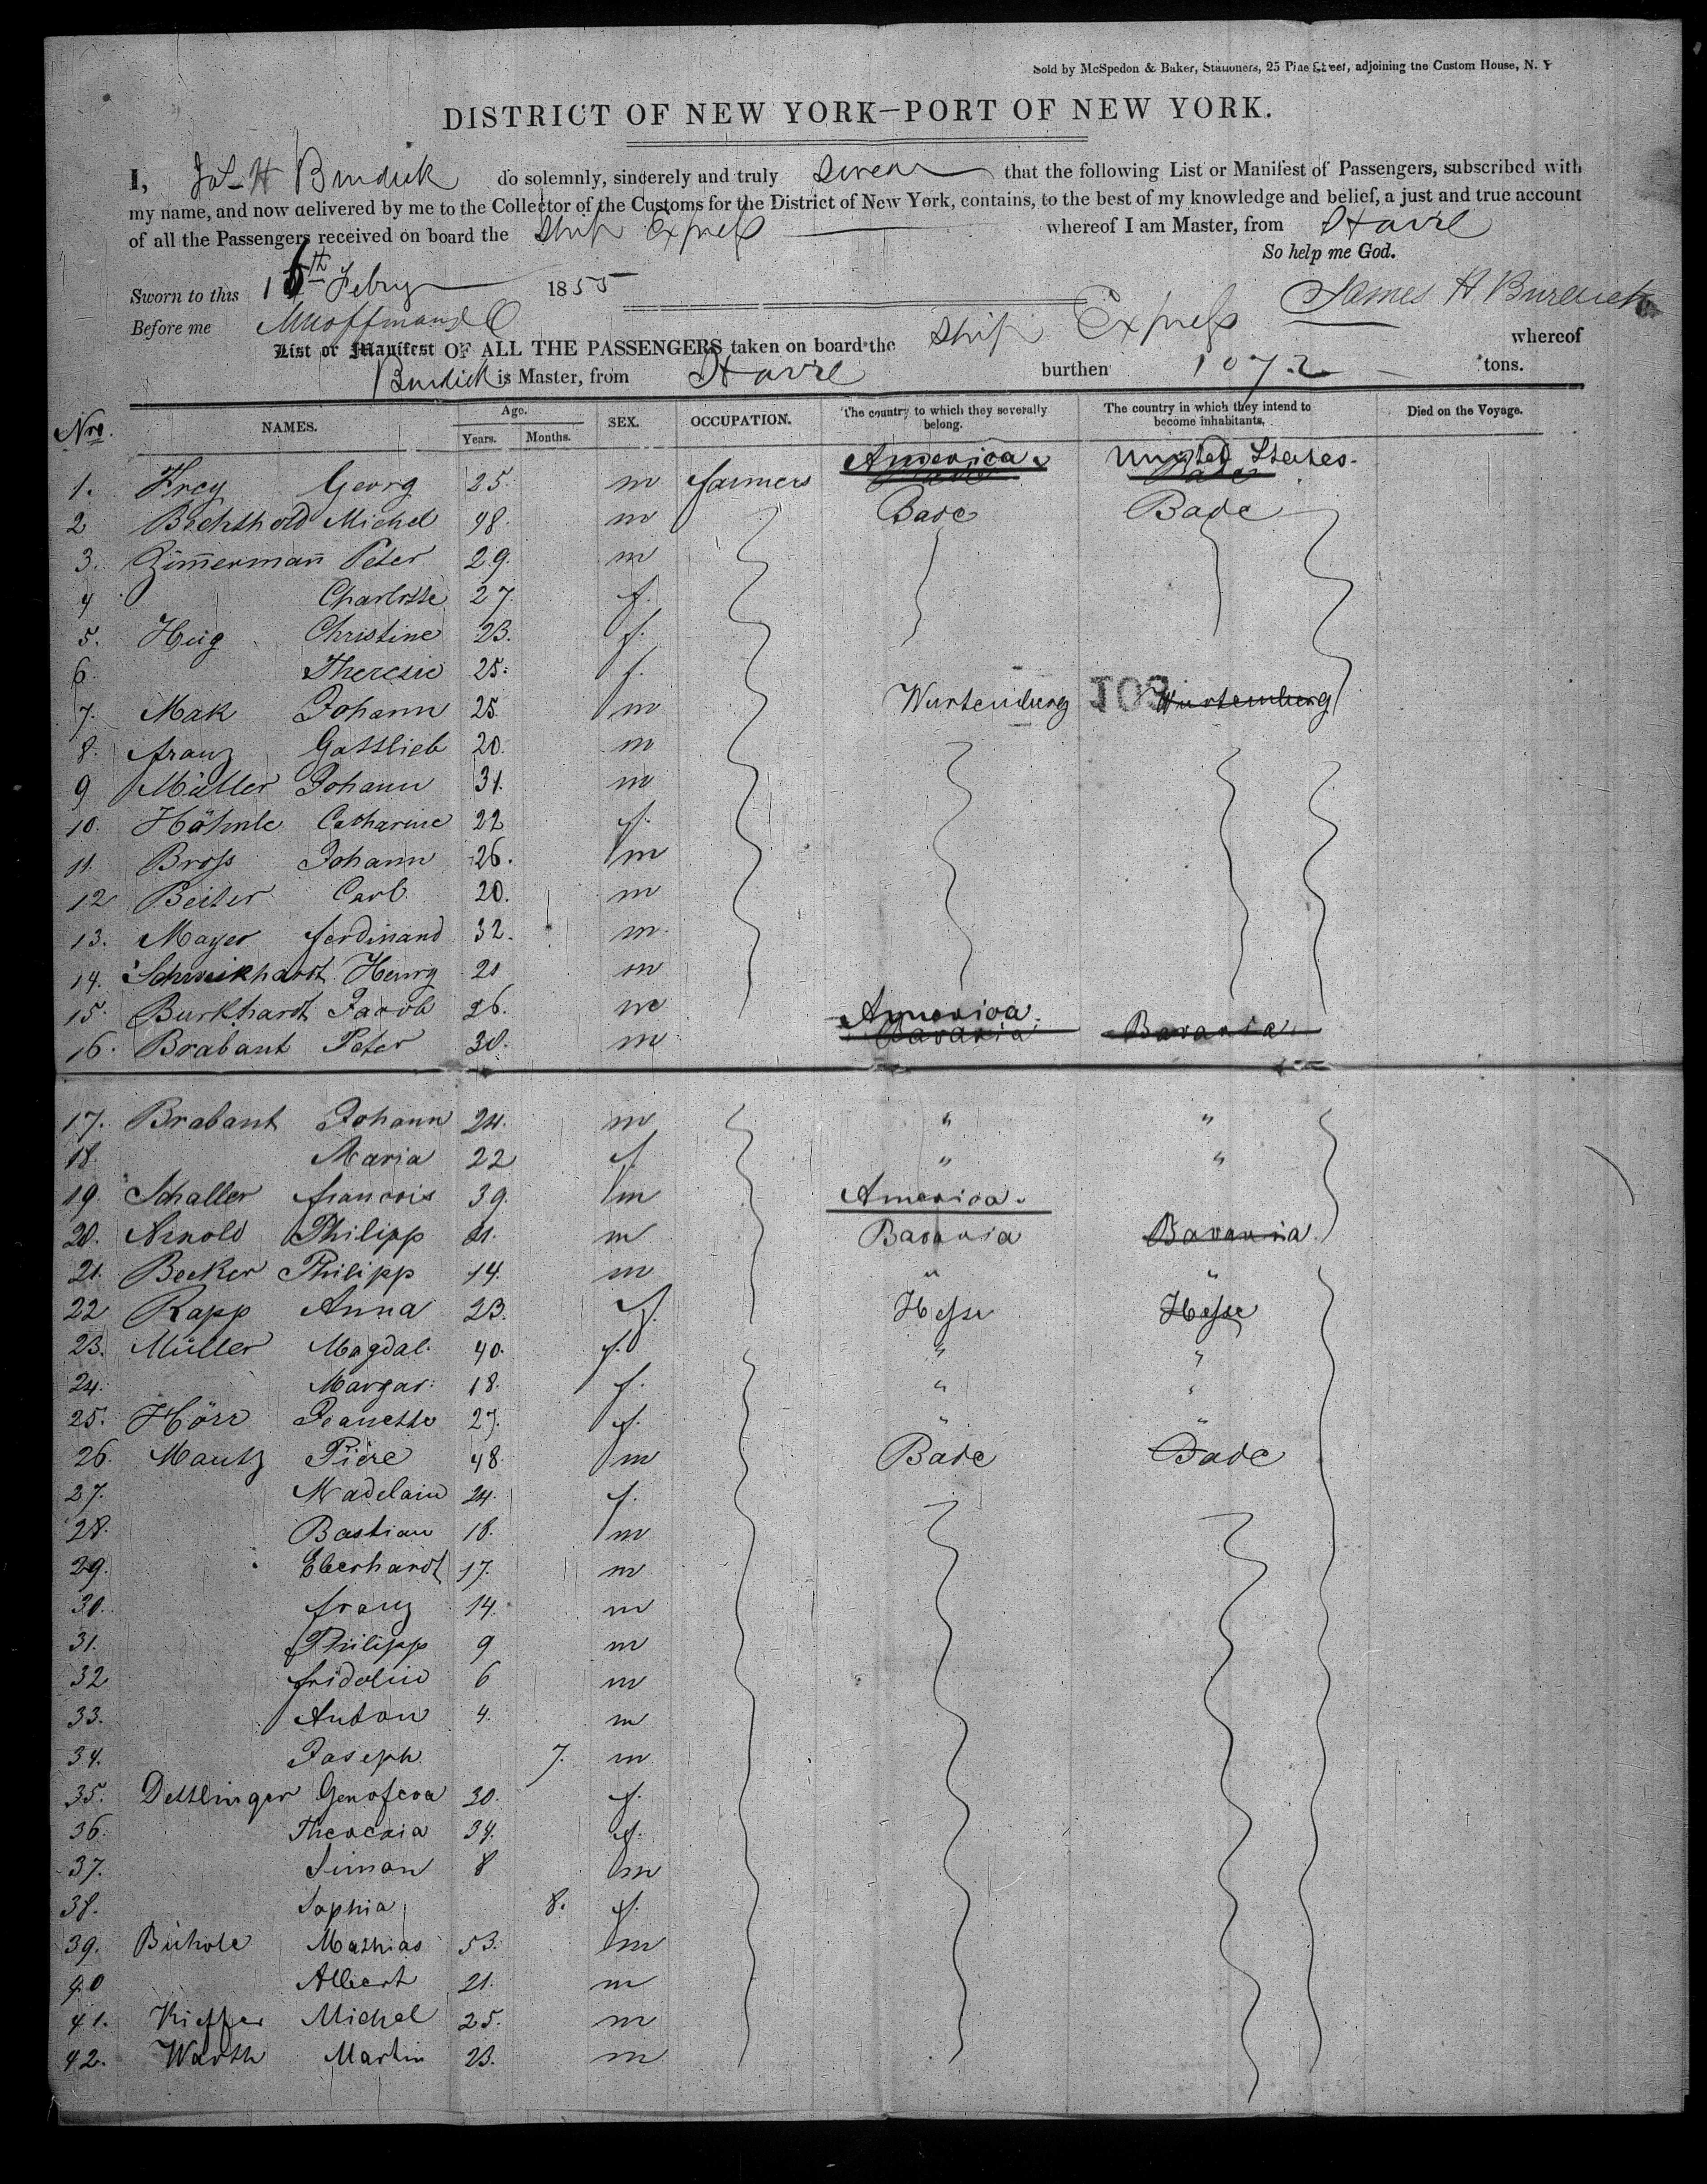 Sold by McSpedon & Baker, Stationers, 25 Pine Street, adjoining the Custom House, N. Y
DISTRICT OF NEW YORK—PORT OF NEW YORK.
I, Jas H Burdick do solemnly, sincerely and truly Swear that the following List or Manifest of Passengers, subscribed with
my name, and now delivered by me to the Collector of the Customs for the District of New York, contains, to the best of my knowledge and belief, a just and true account
of all the Passengers received on board the Ship Express whereof I am Master, from Havre
So help me God.
Sworn to this 16th Febry 1855
James H Burdick
Before me
List or Manifest OF ALL THE PASSENGERS taken on board the Ship Express whereof
Burdick is Master, from Havre burthen 1072 tons.
Nro. NAMES. Age. Years. Months. SEX. OCCUPATION. The country to which they severally belong. The country in which they intend to become inhabitants. Died on the Voyage.
America. United States.
1. Frey Georg 25. m farmers Bade Bade
2 Bechthold Michel 48. m Bade Bade
3. Zim̄erman̄ Peter 29. m
4 Charlotte 27. f.
5. Hug Christine 23. f.
6. Theresie 25. f.
7. Mak Johann 25. m Wurtemberg 103 Wurtemberg
8. franz Gottlieb 20. m
9 Müller Johann 31. m
10. Höhnle Catharine 22 f.
11. Bross Johann 26. m
12 Beiter Carl 20. m
13. Mayer ferdinand 32. m
14. Schweikhardt Henry 21 m
15. Burkhardt Jacob 26. m America.
16. Brabant Peter 30. m Bavaria Bavaria.
17. Brabant Johann 24. m " "
18. Maria 22 f. " "
19. Schaller francois 39. m America.
20. Arnold Philipp 21. m Bavaria Bavaria.
21. Becker Philipp 14. m " "
22 Rapp Anna 23. f. Hesse Hesse
23. Müller Magdal. 40. f. " "
24. Margar: 18. f. " "
25. Hörr Jeanette 27. f. " "
26. Mantz Piere 48. m Bade Bade
27. Madelain 24. f.
28. Bastian 18. m
29. Eberhardt 17. m
30. franz 14. m
31. Philipp 9 m
32 fridolin 6 m
33. Anton 4. m
34. Joseph 7. m
35. Dettlinger Genofeva 30. f.
36. Theresia 34. f.
37. Simon 8 m
38. Sophia 8. f.
39. Mathias 53. m
40 Albert 21. m
41. Kieffer Michel 25. m
42. Warth Martin 23. m